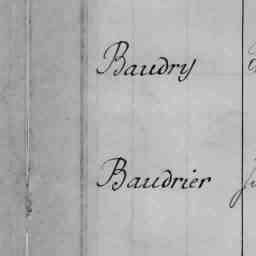 Baudry
Baudrier